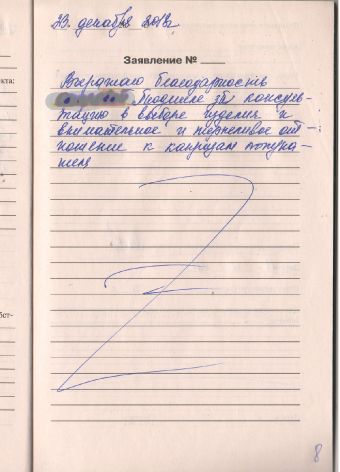 23. декабря 2018г.
Заявление № ____
екта:
Выражаю благодарность
за консуль-
тацию в выборе изделия и
внимательное и терпеливое от-
ношение к капризам покупа-
теля
бст-
8